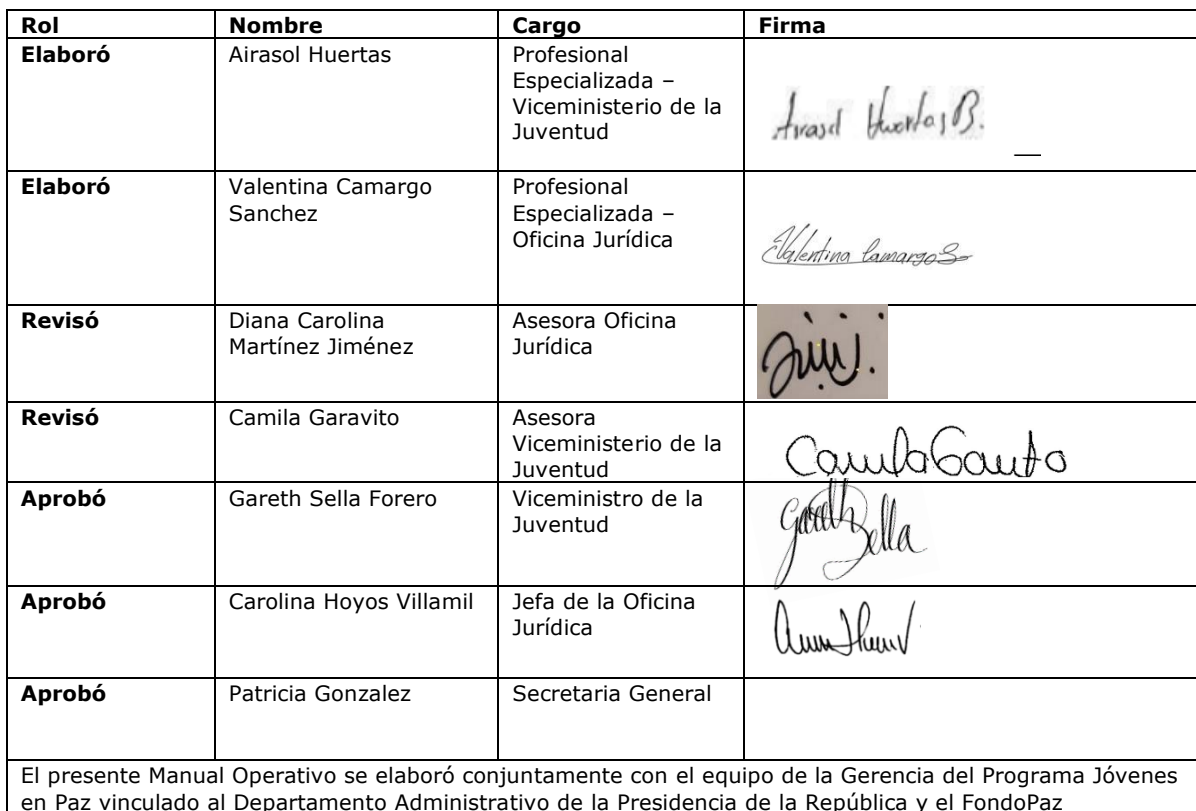 Rol Nombre Cargo Firma
Elaboró Airasol Huertas Profesional
Especializada –
Viceministerio de la
Juventud
Airasol Huertas B.
Elaboró Valentina Camargo Profesional
Sanchez Especializada –
Oficina Jurídica
Valentina Camargo S
Revisó Diana Carolina Asesora Oficina
Martínez Jiménez Jurídica
Revisó Camila Garavito Asesora
Viceministerio de la
Juventud
Aprobó Gareth Sella Forero Viceministro de la
Juventud
Gareth Sella
Aprobó Carolina Hoyos Villamil Jefa de la Oficina
Jurídica
Aprobó Patricia Gonzalez Secretaria General
El presente Manual Operativo se elaboró conjuntamente con el equipo de la Gerencia del Programa Jóvenes
en Paz vinculado al Departamento Administrativo de la Presidencia de la República y el FondoPaz